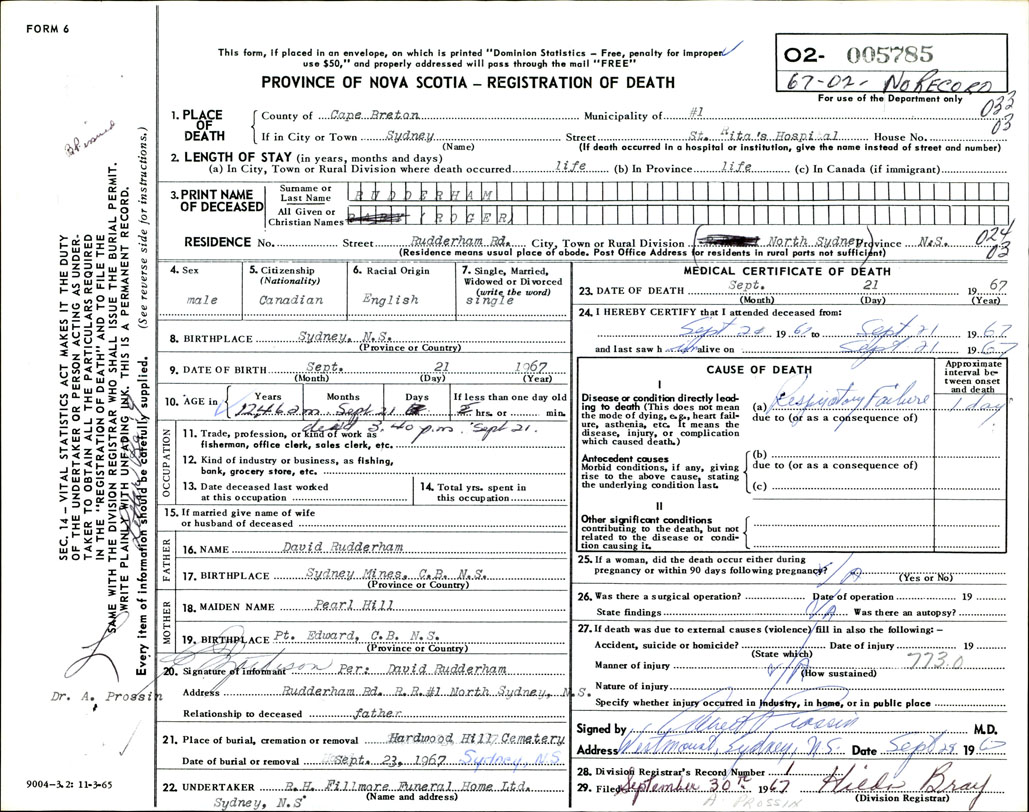 FORM 6
This form, if placed in an envelope, on which is printed "Dominion Statistics – Free, penalty for improper
use $50," and properly addressed will pass through the mail "FREE"
PROVINCE OF NOVA SCOTIA – REGISTRATION OF DEATH
O2- 005785
67-02- NO RECORD
For use of the Department only
033
03
1. PLACE OF DEATH
County of Cape Breton Municipality of #1
If in City or Town Sydney Street St. Rita's Hospital House No.
(Name) (If death occurred in a hospital or institution, give the name instead of street and number)
2. LENGTH OF STAY (in years, months and days)
(a) In City, Town or Rural Division where death occurred life (b) In Province life (c) In Canada (if immigrant)
3. PRINT NAME OF DECEASED
Surname or Last Name RUDDERHAM
All Given or Christian Names (ROGER)
RESIDENCE No. Street Rudderham Rd. City, Town or Rural Division North Sydney Province N.S.
024
03
(Residence means usual place of abode. Post Office Address for residents in rural parts not sufficient)
4. Sex
male
5. Citizenship
(Nationality)
Canadian
6. Racial Origin
English
7. Single, Married,
Widowed or Divorced
(write the word)
single
8. BIRTHPLACE Sydney, N.S.
(Province or Country)
9. DATE OF BIRTH Sept. 21 1967
(Month) (Day) (Year)
10. AGE in Years Months Days If less than one day old
12:46 a.m. Sept 21 hrs. or min.
died 3.40 p.m. Sept 21.
OCCUPATION
11. Trade, profession, or kind of work as
fisherman, office clerk, sales clerk, etc.
12. Kind of industry or business, as fishing,
bank, grocery store, etc.
13. Date deceased last worked
at this occupation
14. Total yrs. spent in
this occupation
15. If married give name of wife
or husband of deceased
FATHER
16. NAME David Rudderham
17. BIRTHPLACE Sydney Mines, C.B. N.S.
(Province or Country)
MOTHER
18. MAIDEN NAME Pearl Hill
19. BIRTHPLACE Pt. Edward, C.B. N.S.
(Province or Country)
20. Signature of informant Per: David Rudderham
Address Rudderham Rd. R.R.#1 North Sydney, N.S.
Relationship to deceased father
21. Place of burial, cremation or removal Hardwood Hill Cemetery
Date of burial or removal Sept. 23, 1967 Sydney, N.S.
22. UNDERTAKER R.H. Fillmore Funeral Home Ltd.
(Name and address)
Sydney, N.S
MEDICAL CERTIFICATE OF DEATH
23. DATE OF DEATH Sept. 21 1967
(Month) (Day) (Year)
24. I HEREBY CERTIFY that I attended deceased from:
Sept 21 1967 to Sept 21 1967
and last saw h alive on Sept 21 1967
CAUSE OF DEATH
Approximate
interval be-
tween onset
and death
I
Disease or condition directly lead-
ing to death (This does not mean
the mode of dying, e.g., heart fail-
ure, asthenia, etc. It means the
disease, injury, or complication
which caused death.)
(a) Respiratory Failure 1 day
due to (or as a consequence of)
Antecedent causes
Morbid conditions, if any, giving
rise to the above cause, stating
the underlying condition last.
(b)
due to (or as a consequence of)
(c)
II
Other significant conditions
contributing to the death, but not
related to the disease or condi-
tion causing it.
25. If a woman, did the death occur either during
pregnancy or within 90 days following pregnancy? N/A
(Yes or No)
26. Was there a surgical operation? Date of operation 19
State findings N/A Was there an autopsy?
27. If death was due to external causes (violence) fill in also the following: –
Accident, suicide or homicide? Date of injury 19
(State which) 773.0
Manner of injury N/A
(How sustained)
Nature of injury
Specify whether injury occurred in industry, in home, or in public place
Signed by Albert Prossin M.D.
Address Westmount, Sydney, N.S. Date Sept 29 1967
28. Division Registrar's Record Number 1
29. Filed September 30th 1967 Hilda Bray
A PROSSIN
(Division Registrar)
SEC. 14 – VITAL STATISTICS ACT MAKES IT THE DUTY
OF THE UNDERTAKER OR PERSON ACTING AS UNDER-
TAKER TO OBTAIN ALL THE PARTICULARS REQUIRED
IN THE "REGISTRATION OF DEATH" AND TO FILE THE
SAME WITH THE DIVISION REGISTRAR WHO SHALL ISSUE THE BURIAL PERMIT.
WRITE PLAINLY WITH UNFADING INK. THIS IS A PERMANENT RECORD.
Every item of information should be carefully supplied. (See reverse side for instructions.)
Dr. A. Prossin
9004–3.2: 11-3-65